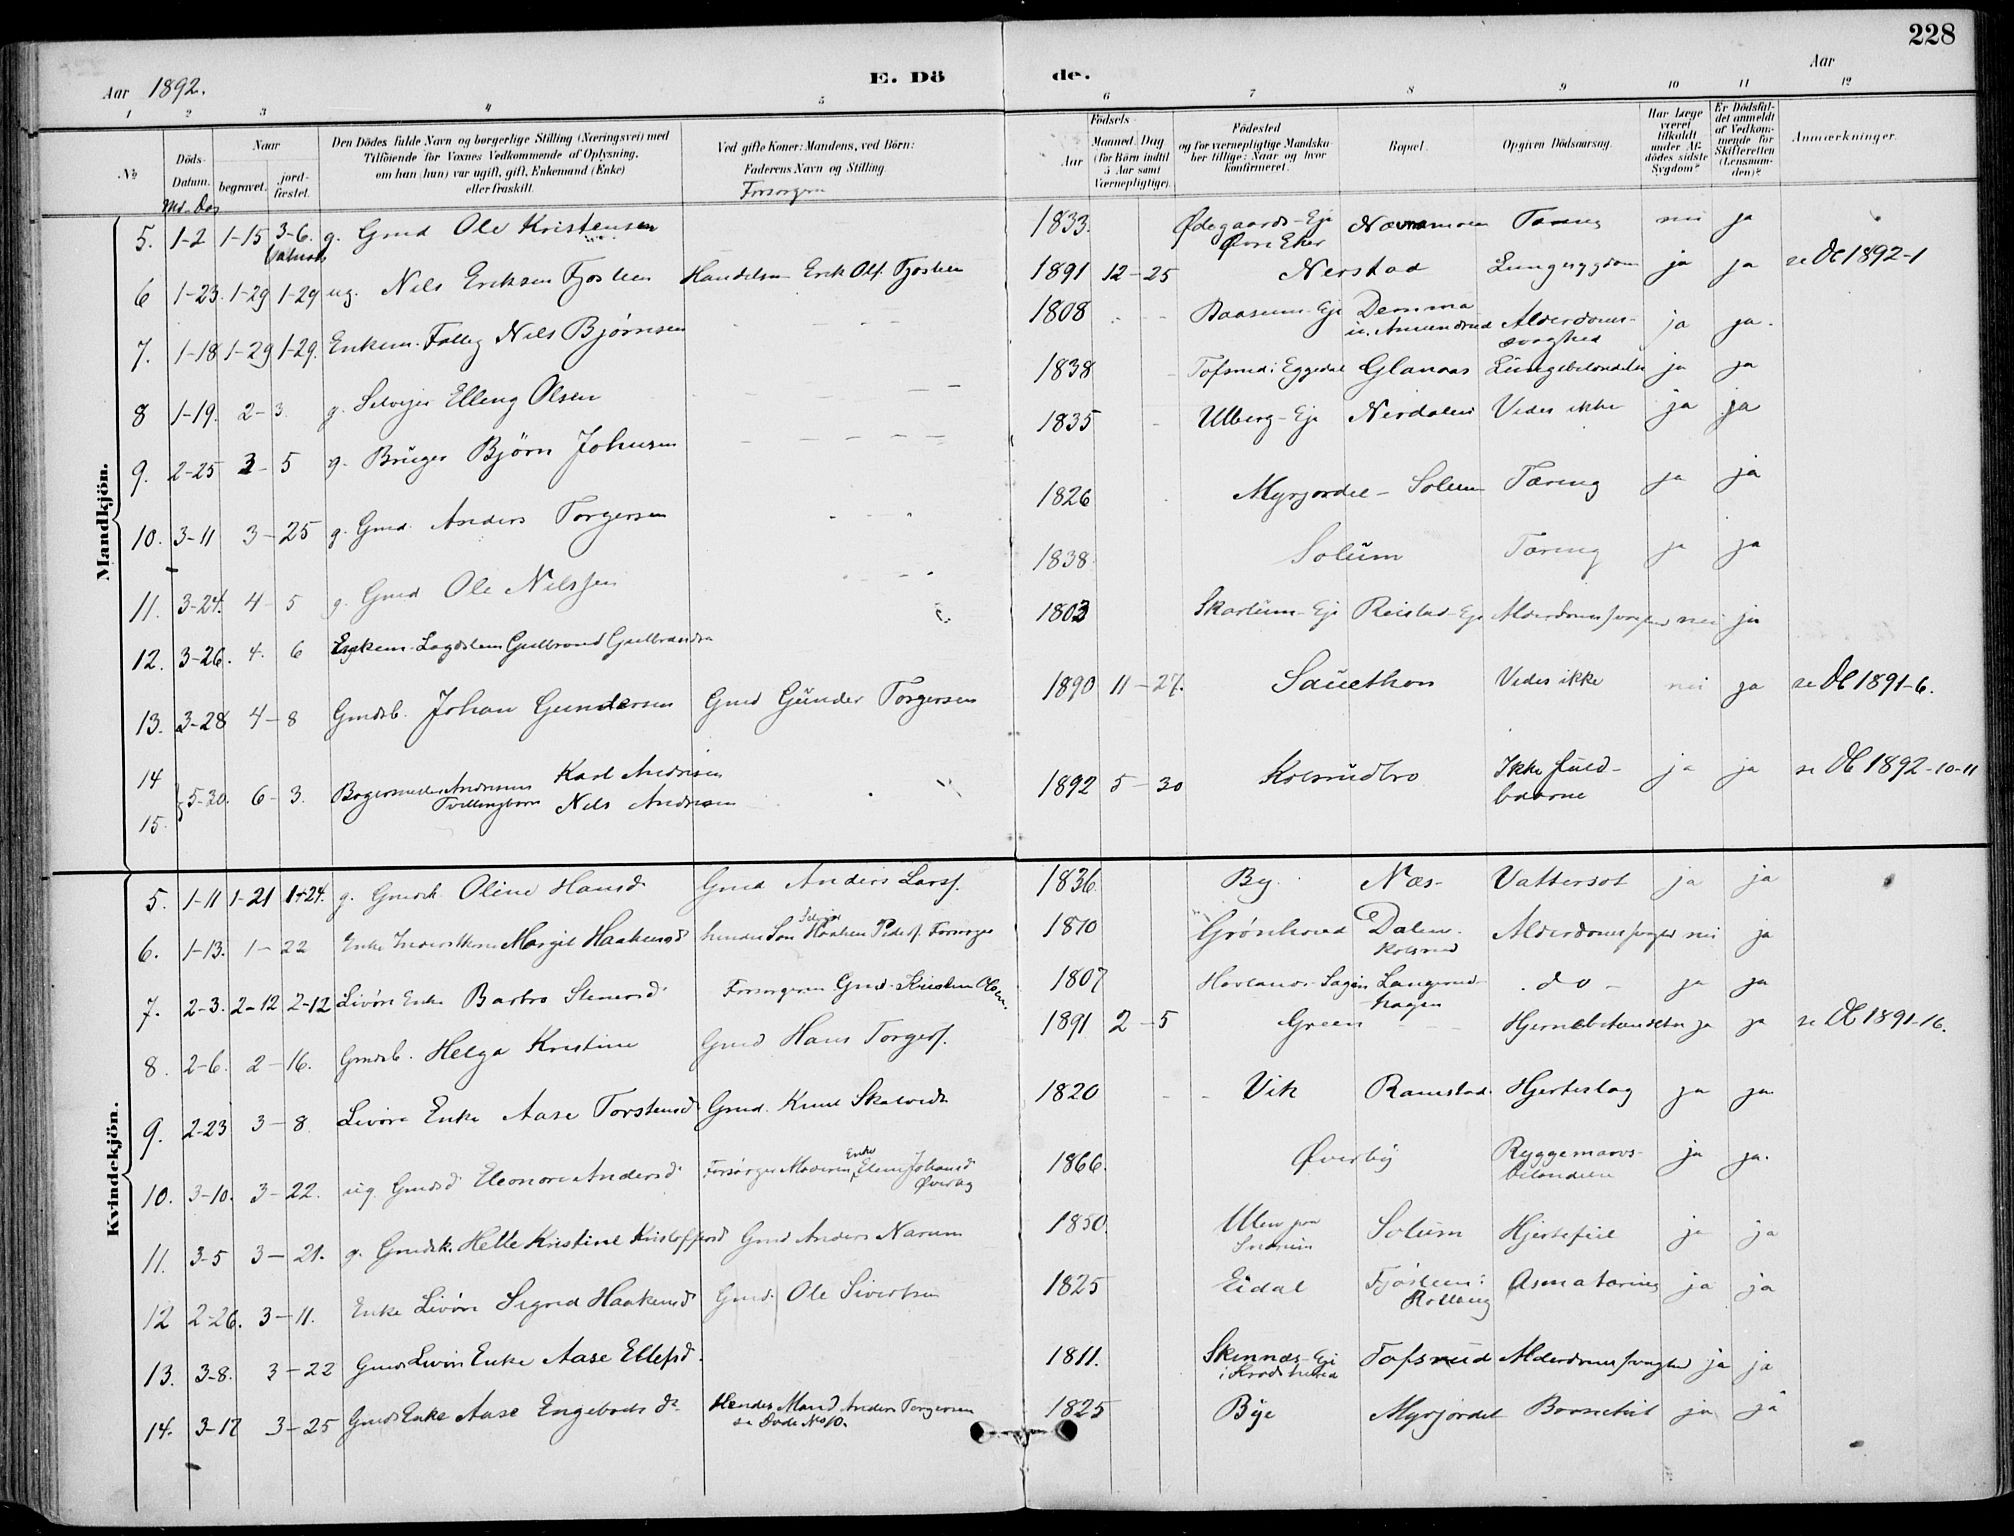 228
Aar 1892.
E. Döde.
Aar
1 2 3 4 5 6 7 8 9 10 11 12
No
Döds-Datum.
Md. Dag
Naar
begravet.
jord-fæstet.
Den Dödes fulde Navn og borgerlige Stilling (Næringsvei) med
Tilföiende for Voxnes Vedkommende af Oplysning,
om han (hun) var ugift, gift, Enkemand (Enke)
eller fraskilt.
Ved gifte Koner: Mandens, ved Börn:
Faderens Navn og Stilling.
Forsorgeren
Födsels-
Aar
Maaned. Dag
(for Börn indtil
5 Aar samt
Værnepligtige).
Födested
og for værnepligtige Mandska-
ber tillige: Naar og hvor
konfirmeret.
Bopæl.
Opgiven Dödsaarsag.
Har Læge
været
tilkaldt
under Af-
dödes sidste
Sygdom?
Er Dödsfal-
det anmeldt
af Vedkom-
mende for
Skifteretten
(Lensman-
den)?
Anmærkninger.
Mandkjön.
5. 1-2 1-15 3-6. g. Gmd Ole Kristensen 1833. Ødegaards-Eje Øvre Eker Næsmoen Tæring nei ja
6 1-23. 1-29 1-29 ug. Nils Eriksen Fjøsteen Handelsm Erik Ols. Fjøsteen 1891 12-25 Nerstad Lungesygdom ja ja se Db 1892-1
7. 1-18 1-29 1-29. Enkem. Fattig Nils Bjørnsen 1808 Baasum-Eje Demma u. Amundrud Alderdoms-svaghed ja ja.
8 1-19. 2-3. g. Selvejer Elling Olsen 1838 Tofsrud i Eggedal Glanaas Lungebetændelse ja ja
9. 2-25 3-5 g. Bruger Bjørn Johnsen 1835 Ulberg-Eje Nerdalen Vides ikke ja ja
10. 3-11 3-25 g. Gmd. Anders Torgersen 1826 Myrjordet-Solum Tæring ja ja
11. 3-24. 4-5 g. Gmd Ole Nilssen 1838. Solum Tæring ja ja
12. 3-26. 4. 6 Enkem. Lægdslem Gulbrand Gulbrandsen 1803 Skartum-Eje Reistad-Eje Alderdomssvaghed nei ja
13. 3-28 4-8 Gmdsb. Johan Gundersen Gmd Gunder Torgersen 1890 11-27. Sauethon Vides ikke nei ja se Db 1891-6.
14
15. 5-30. 6-3. Tvillingbørn Karl Andresen Nils Andresen 1892 5-30 Kolsrudbro Ikke fuld-baarne ja ja se Db 1892-10-11
Kvindekjön.
5. 1-11 1-21 1-24. g. Gmdsk. Oline Hansd. Gmd Anders Larss. 1836. By. Næs- Vattersot ja ja
6. 1-13. 1-22 Enke Inderstkone Margit Haakensd hendes Søn Selvejer Haaken Peders. Forsørger 1810 Grønhovd Dalen. Kolsrud Alderdomssvaghed nei ja
7. 2-3. 2-12 2-12 Livøre Enke Barbro Stenersd Forsorgeren Gmd. Kristen Olsen. 1807 Hovlands-Sagen Langerudhagen do ja ja
8. 2-6. 2-16. Gmdsb. Helga Kristine Gmd Hans Torgers. 1891 2-5 Green Hjernebetændelse ja ja se Db 1891-16.
9. 2-23 3-8. Livøre Enke Aase Torstensd Gmd. Knud Skalvedt 1820 Vik Ramstad. Hjerteslag ja ja.
10. 3-10. 3-22. ug. Gmdsd Eleonore Andersd Forsørger Moderen, Enke Eline Johansd Øverby 1866. Øverby Ryggemarvs-betændelse ja ja.
11. 3-5 3-21. g. Gmdsk. Helle Kristine Kristoffersd Gmd Anders Narum 1850. Ulen paa Snarum Solum Hjertefeil ja ja
12 2-26. 3-11. Enke Livøre Sigrid Haakensd Gmd. Ole Sivertsen 1825 Eidal Fjøsteen i Rolloug Asmatæring ja ja
13. 3-8. 3-22 Gmds Livøre Enke Aase Ellefsd. 1811. Skinnes-Eje i Krødsherred Tofsrud Alderdomssvaghed ja ja
14. 3-17 3-25 Gmds Enke Aase Engebretsd. Hendes Mand Anders Torgersen se Døde No 10. 1825 Bye Myrjordet Bronchit ja ja